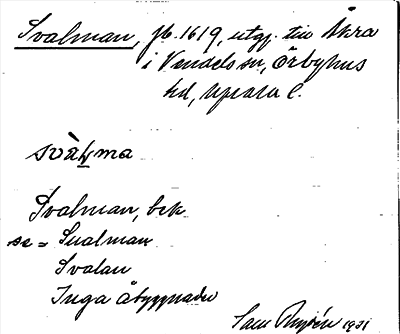 Svalman, fb. 1619, utgj. tiu Åkra
i Vendels sn, Örbyhus
hd, Upsala l.
svàḷma
Svalman, bek
se = Sualman
Svalan
Inga åbyggnader
Sam 1931